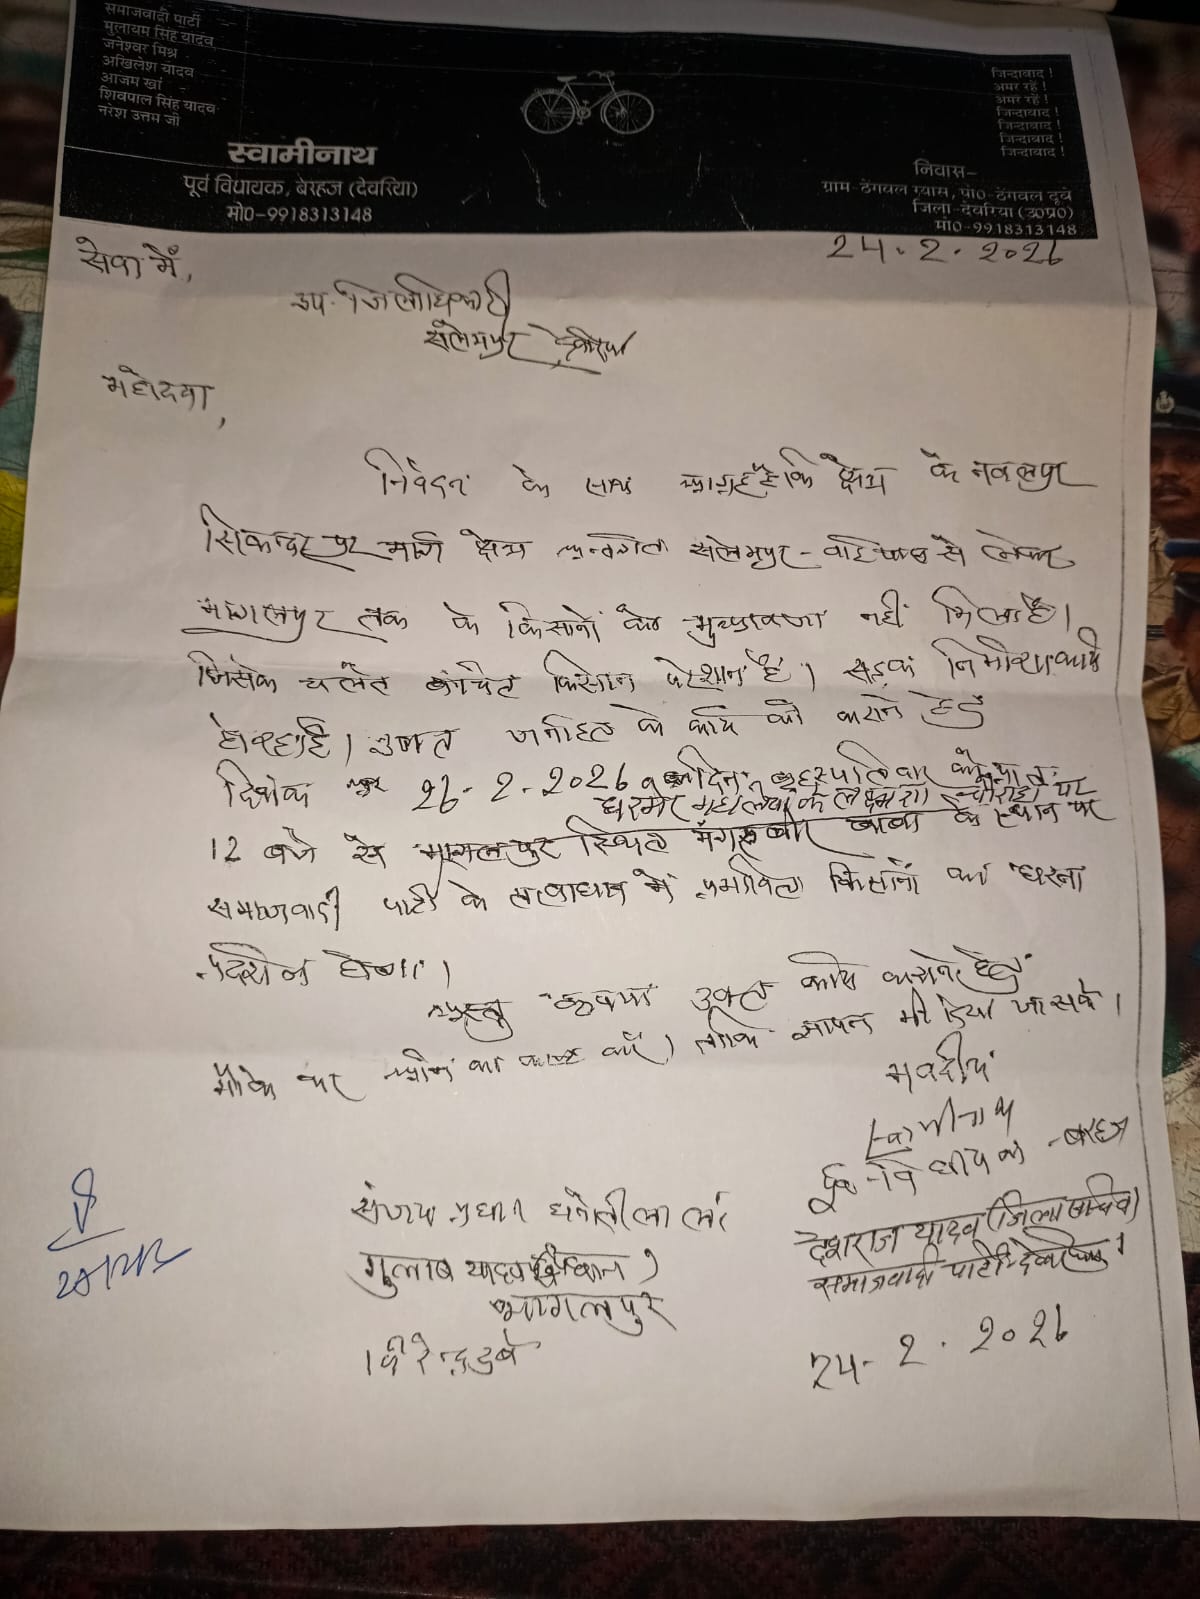 समाजवादी पार्टी
मुलायम सिंह यादव
जनेश्वर मिश्र
अखिलेश यादव
आजम खां
शिवपाल सिंह यादव
नरेश उत्तम जी
जिन्दाबाद !
अमर रहें !
अमर रहें !
जिन्दाबाद !
जिन्दाबाद !
जिन्दाबाद !
जिन्दाबाद !
स्वामीनाथ
पूर्व विधायक, बेरहज (देवरिया)
मो0-9918313148
निवास-
ग्राम-ठेंगवल ग्यास, पो0-ठेंगवल दूबे
जिला-देवरिया (उ0प्र0)
मो0-9918313148
24.2.2026
सेवा में,
उप-जिलाधिकारी
सलेमपुर देवरिया
महोदया,
निवेदन के साथ आग्रह है कि क्षेत्र के नवलपुर
सिकन्दरपुर मार्ग क्षेत्र अन्तर्गत सलेमपुर - से लेकर
भागलपुर तक के किसानों को मुआवजा नहीं मिला है।
जिसके चलते वंचित किसान परेशान है। सड़क निर्माण कार्य
हो रहा है। उक्त जनहित के कार्य को कराने हेतु
दिनांक 26-2-2026 दिन बृहस्पतिवार को
चौराहा पर
12 बजे से भागलपुर स्थित बाबा के स्थान पर
समाजवादी पार्टी के तत्वाधान में प्रभावित किसानों का धरना
प्रदर्शन होगा।
अस्तु कृपया उक्त कार्य कराने हेतु
मौके पर आने का कष्ट करें। ताकि ज्ञापन भी दिया जा सके।
भवदीय
स्वामीनाथ
पूर्व-विधायक-बरहज
संजय प्रधान
देशराज यादव (जिला सचिव)
गुलाब यादव
समाजवादी पार्टी-देवरिया
भागलपुर
विरेन्द्र दुबे
24-2.2026